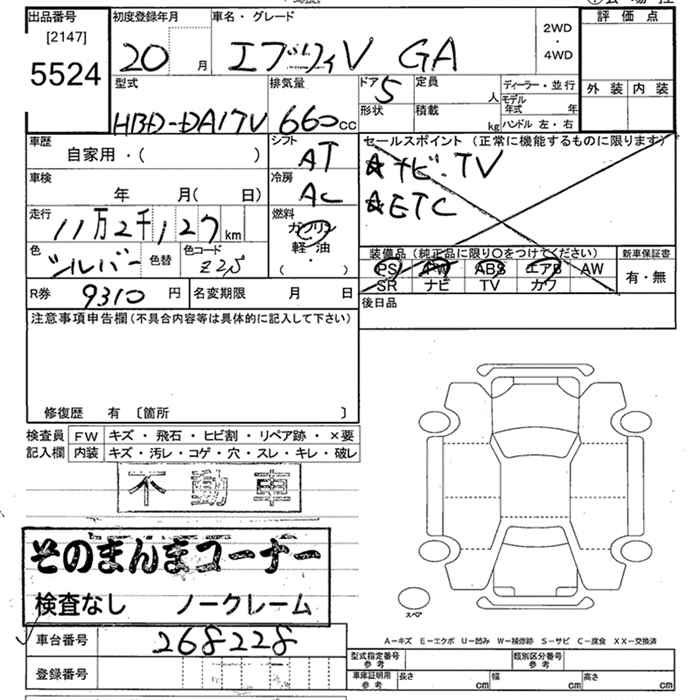 出品番号
[2147]
5524
初度登録年月
20 月
車名・グレード
エブリィV GA
2WD
・
4WD
評価点
外装 内装
型式
HBD-DA17V
排気量
660cc
ドア 5
形状
定員 人
積載 kg
ディーラー・並行
モデル年式 年
ハンドル 左・右
車歴
自家用・( )
シフト
AT
セールスポイント (正常に機能するものに限ります)
☆ナビ・TV
☆ETC
車検
年 月( 日)
冷房
AC
走行
11万2千127km
燃料
ガソリン
軽油
・
( )
色
シルバー
色替
色コード
Z2S
装備品 (純正品に限り〇をつけてください)
新車保証書
PS PW ABS エアB AW
SR ナビ TV カワ
有・無
R券 9310円
名変期限 月 日
後日品
注意事項申告欄(不具合内容等は具体的に記入して下さい)
修復歴 有 〔箇所 〕
検査員 FW キズ・飛石・ヒビ割・リペア跡・×要
記入欄 内装 キズ・汚レ・コゲ・穴・スレ・キレ・破レ
不動車
そのまんまコーナー
検査なし ノークレーム
スペア
車台番号 268228
登録番号
A-キズ E-エクボ U-凹み W-補修跡 S-サビ C-腐食 XX-交換済
型式指定番号 参考
類別区分番号 参考
車庫証明用 参考
長さ cm
幅 cm
高さ cm